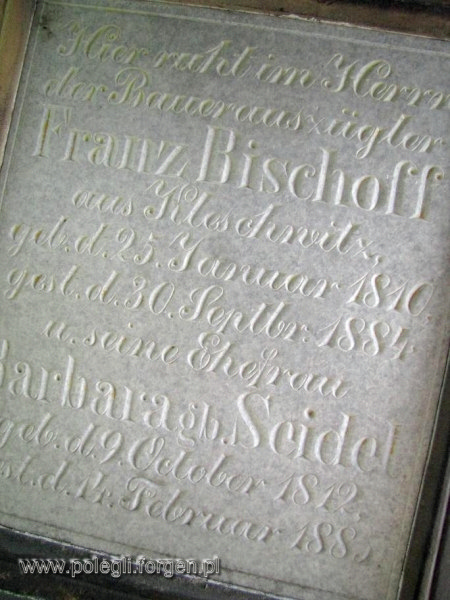 Hier ruht im Herrn
der Bauerauszügler
Franz Bischoff
aus Kleschwitz,
geb. d. 25. Januar 1810.
gest. d. 30. Septbr. 1884
u. seine Ehefrau
Barbara gb. Seidel
geb. d. 9. October 1812.
gest. d. 14. Februar
www.polegli.forgen.pl